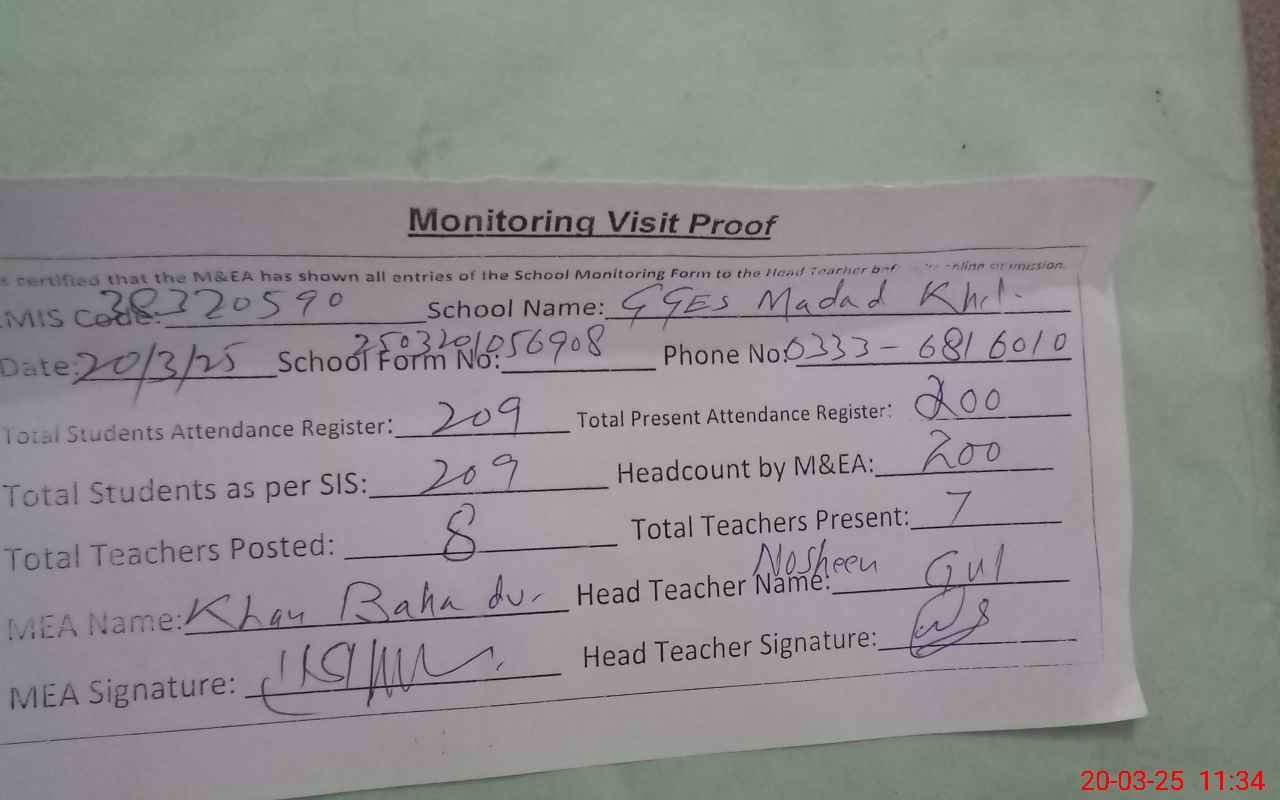 Monitoring Visit Proof
s certified that the M&EA has shown all entries of the School Monitoring Form to the Head Teacher
MIS Code: 38320590 School Name: GGES Madad Khel.
Date: 20/3/25 School Form No: 2503201056908 Phone No: 0333-6816010
Total Students Attendance Register: 209 Total Present Attendance Register: 200
Total Students as per SIS: 209 Headcount by M&EA: 200
Total Teachers Posted: 8 Total Teachers Present: 7
MEA Name: Khan Bahadur Head Teacher Name: Nosheen Gul
MEA Signature: Head Teacher Signature:
20-03-25 11:34